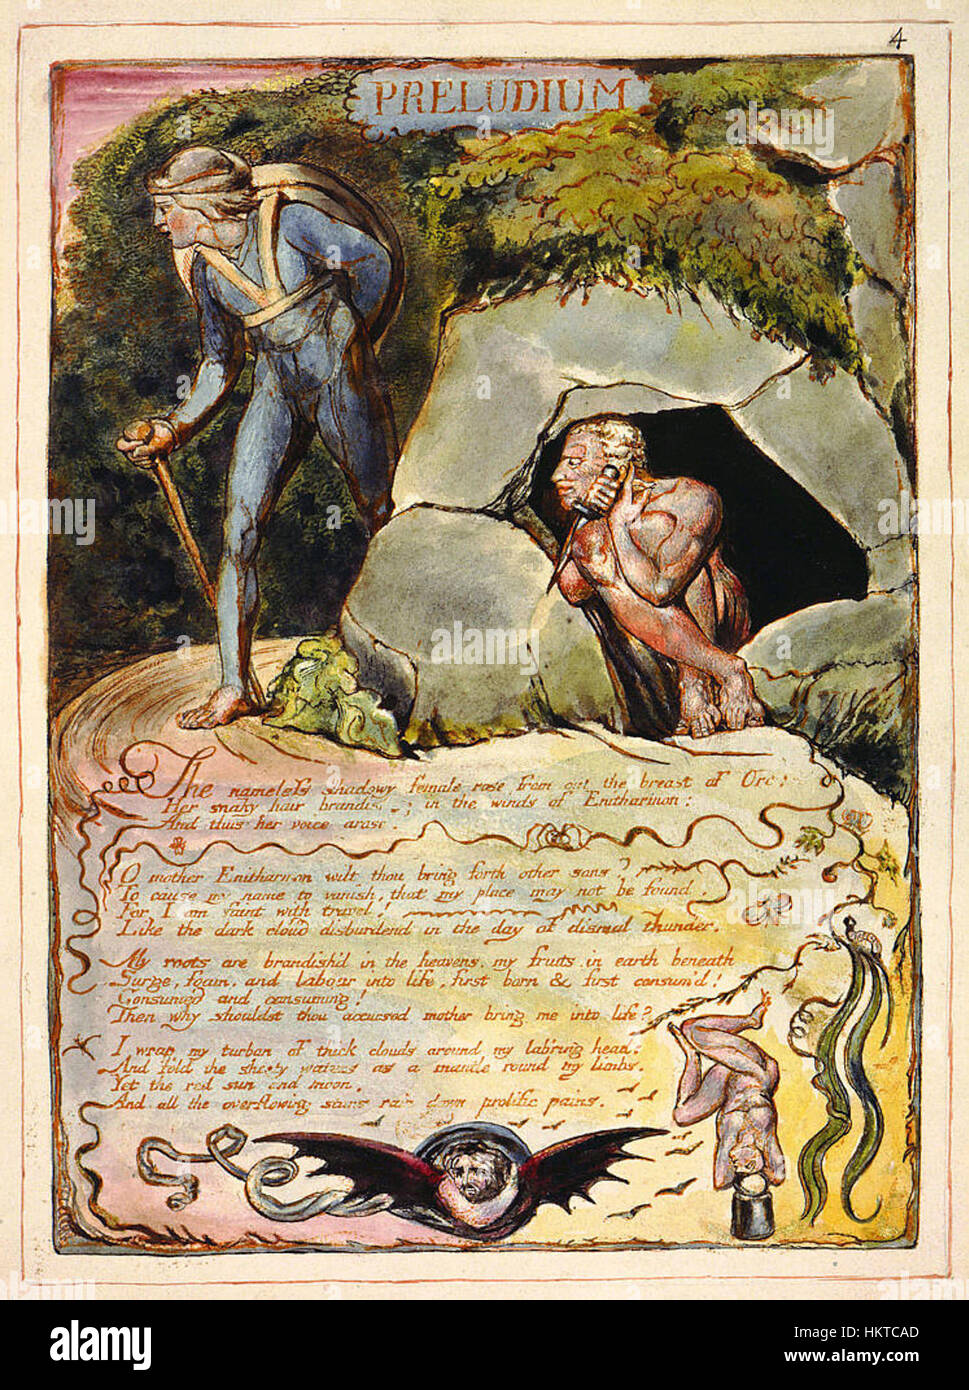 4
PRELUDIUM
The nameless shadowy female rose from out the breast of Orc:
Her snaky hair brandishing in the winds of Enitharmon:
And thus her voice arose.
O mother Enitharmon wilt thou bring forth other sons?
To cause my name to vanish, that my place may not be found.
For I am faint with travel!
Like the dark cloud disburdend in the day of dismal thunder.
My roots are brandish'd in the heavens, my fruits in earth beneath
Surge, foam, and labour into life, first born & first consum'd!
Consumed and consuming!
Then why shouldst thou accursed mother bring me into life?
I wrap my turban of thick clouds around my lab'ring head:
And fold the sheety waters as a mantle round my limbs.
Yet the red sun and moon,
And all the overflowing stars rain down prolific pains.
alamy stock photo
alamy
Image ID: HKTCAD
www.alamy.com